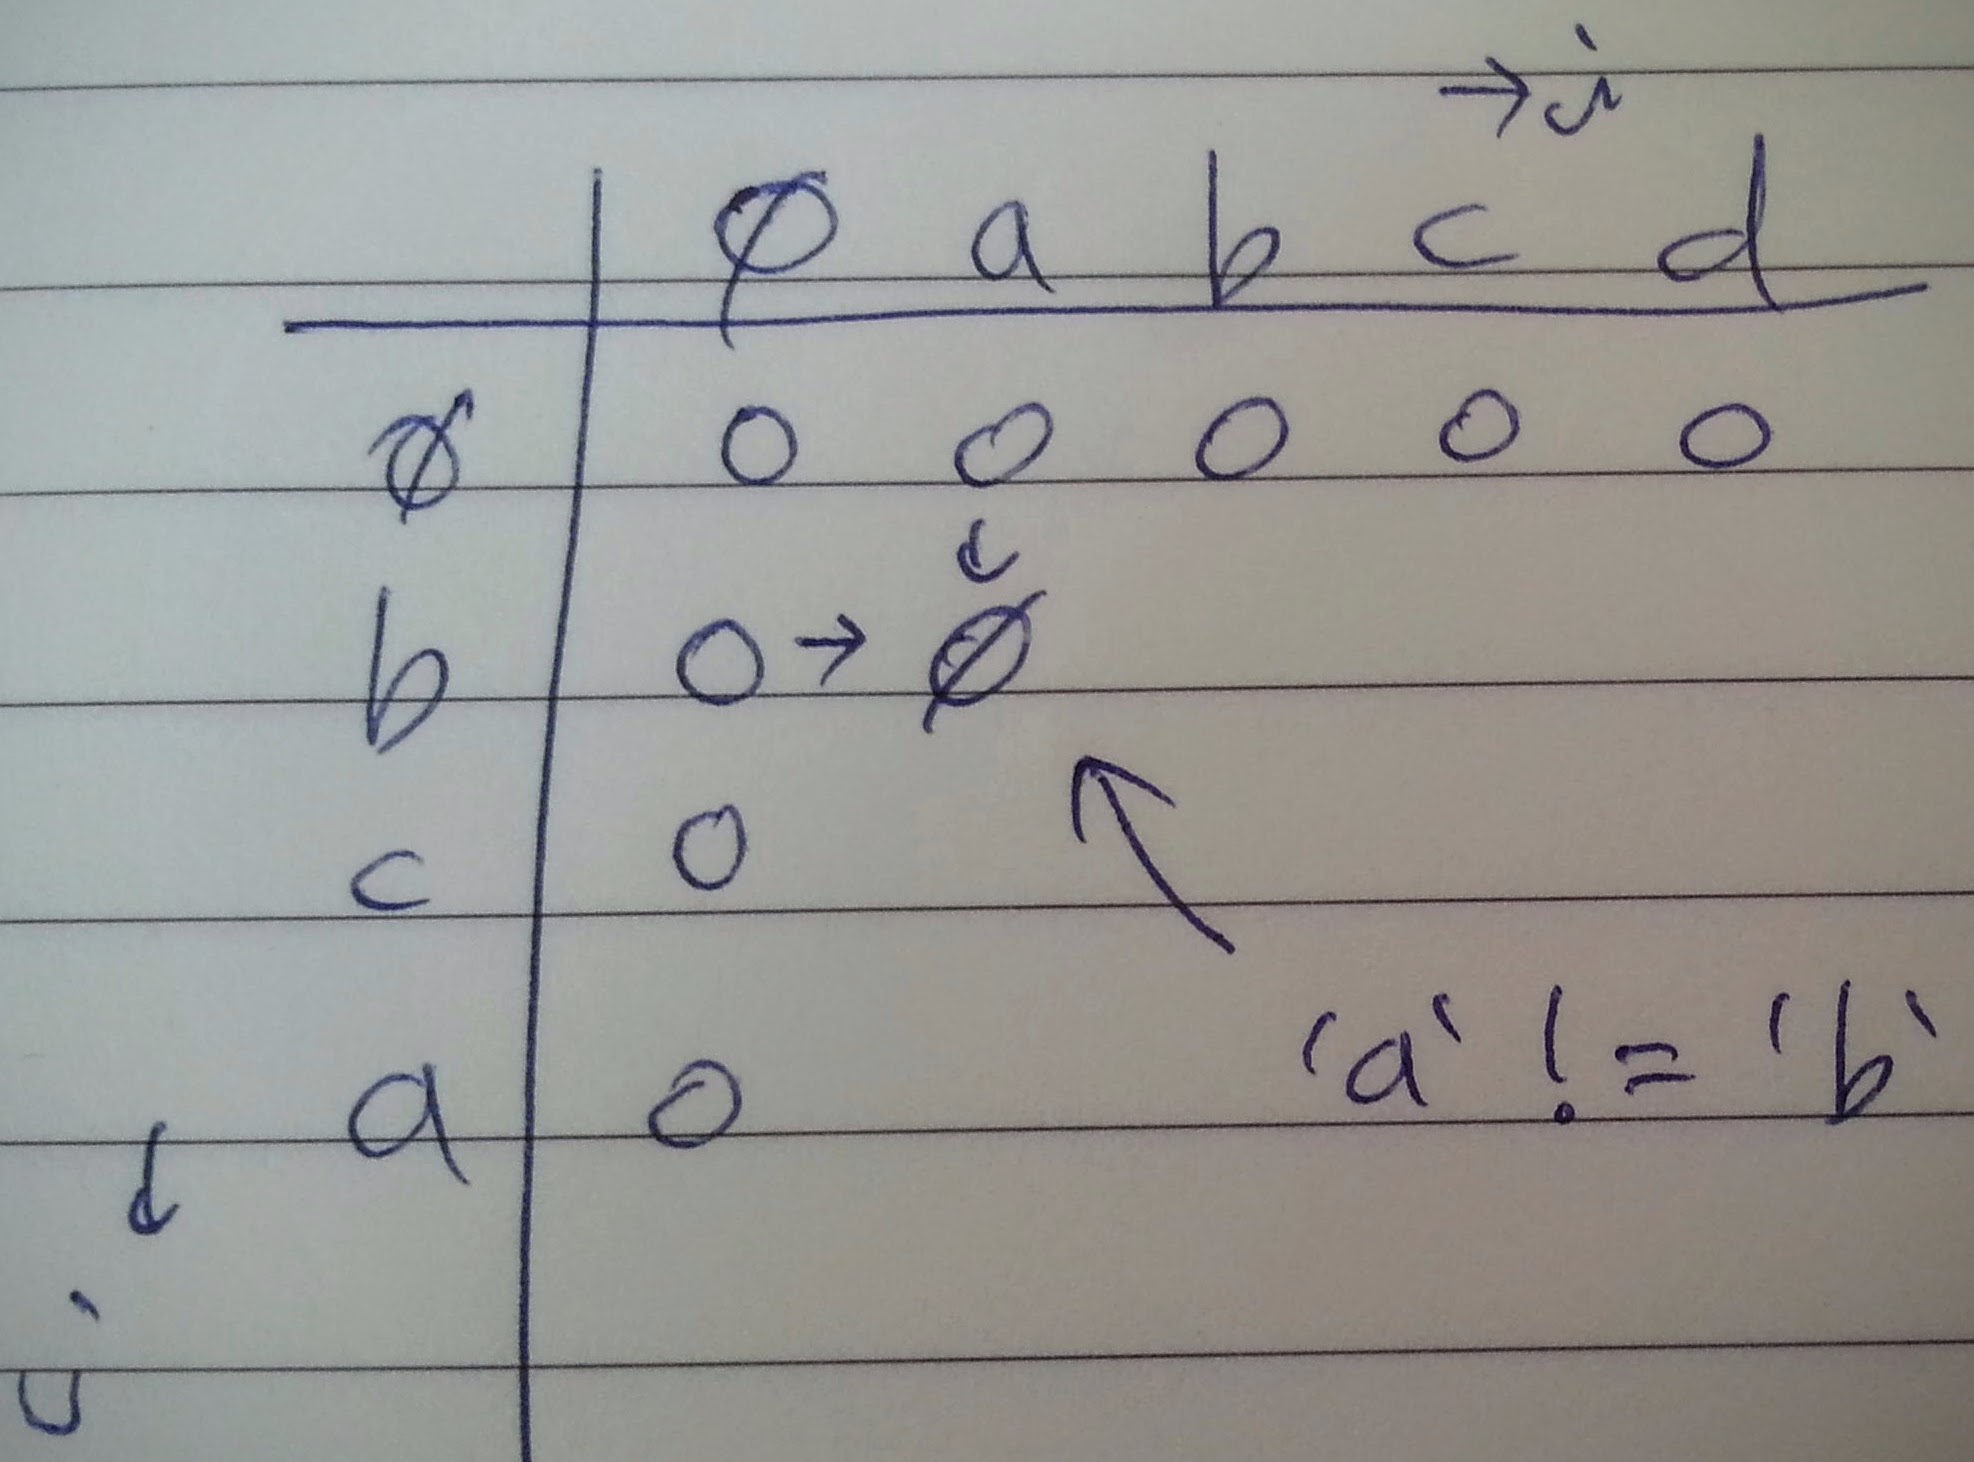 → i
ø a b c d
ø 0 0 0 0 0
↓
b 0 → ø
c 0
a 0 'a' != 'b'
↓
j